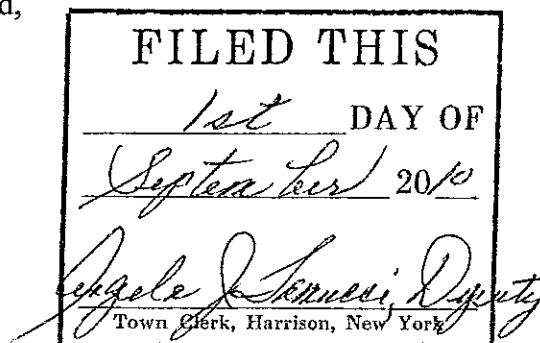 d,
FILED THIS
1st DAY OF
September 2010
Angela J. Deputy
Town Clerk, Harrison, New York